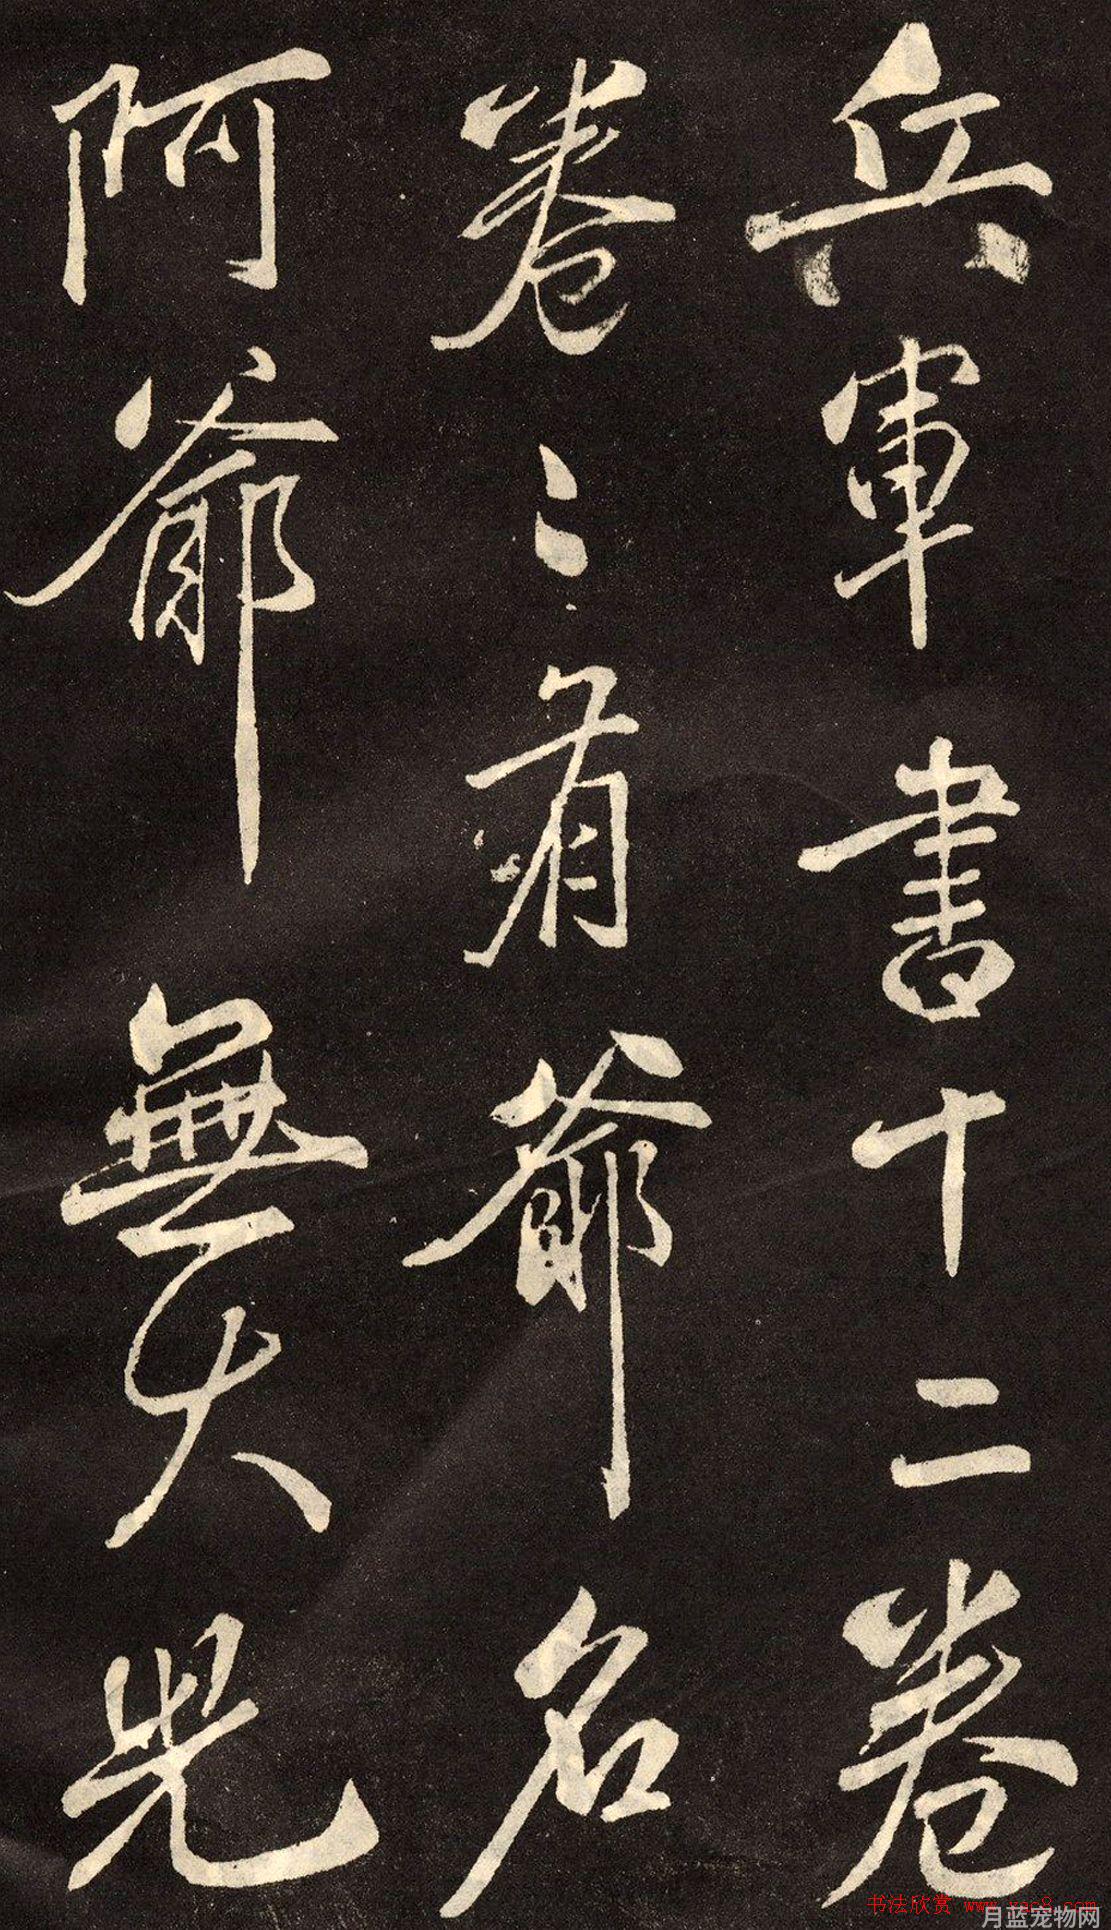 兵軍書十二卷
卷〻有爺名
阿爺無大兒
书法欣赏 www.yac8.com
月蓝宠物网